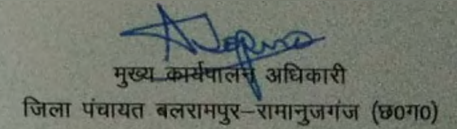 मुख्य कार्यपालन अधिकारी
जिला पंचायत बलरामपुर–रामानुजगंज (छ0ग0)